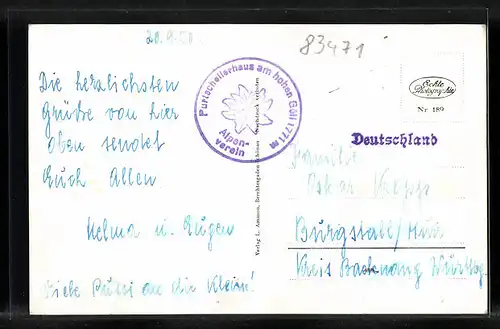 20.9.50
83471
Die herzlichsten
Grüße von hier
oben sendet
Euch Allen
Helma u. Eugen
Viele Bussi an die Kleine!
Purtschellerhaus am hohen Göll 1771 m
Alpen-
verein
Verlag L. Ammon, Berchtesgaden-Schönau Nachdruck verboten
Echte
Photographie
Nr. 189
Deutschland
Familie
Oskar
Burgstall/Murr
Kreis Backnang Württbg.